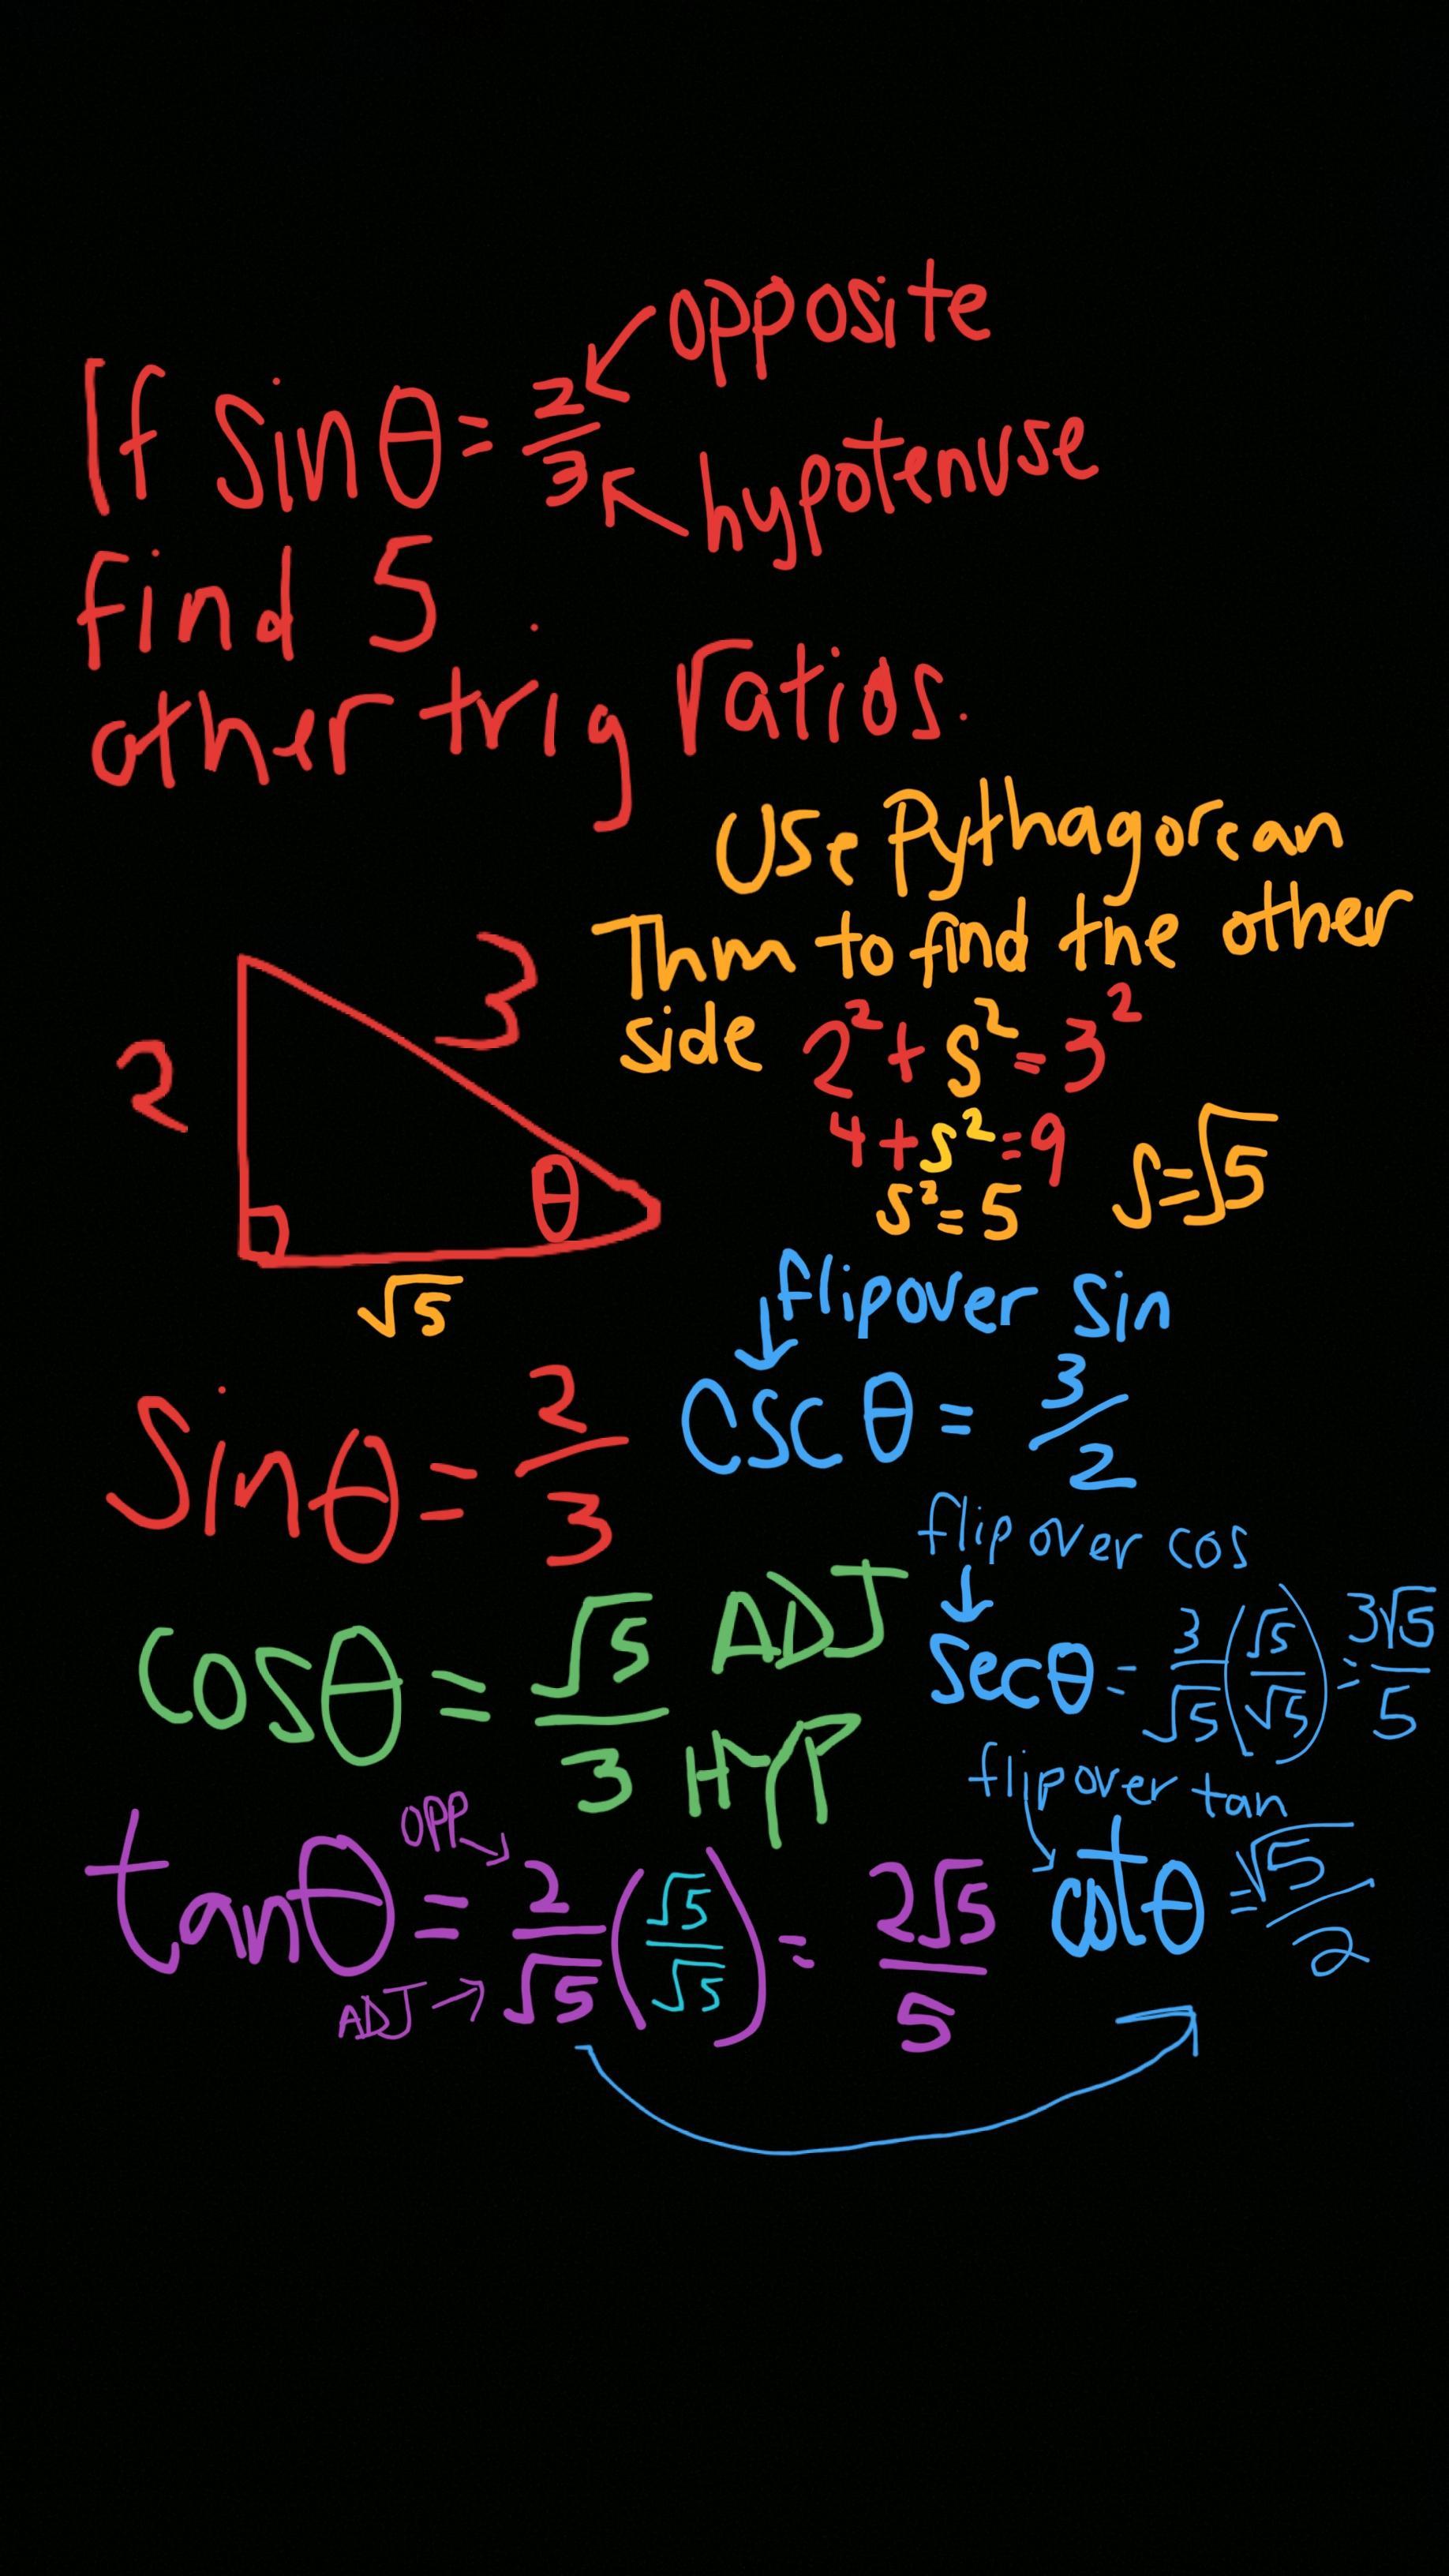 opposite
If sinθ = 2/3
hypotenuse
find 5
other trig ratios.
Use Pythagorean
Thm to find the other
side 2² + s² = 3²
4 + s² = 9
s² = 5 s = √5
2
3
θ
√5
flipover sin
sinθ = 2/3 csc θ = 3/2
flip over cos
cosθ = √5/3 ADJ HYP secθ = 3/√5 (√5/√5) = 3√5/5
flipover tan
OPP
tanθ = 2/√5 (√5/√5) = 2√5/5 cotθ = √5/2
ADJ